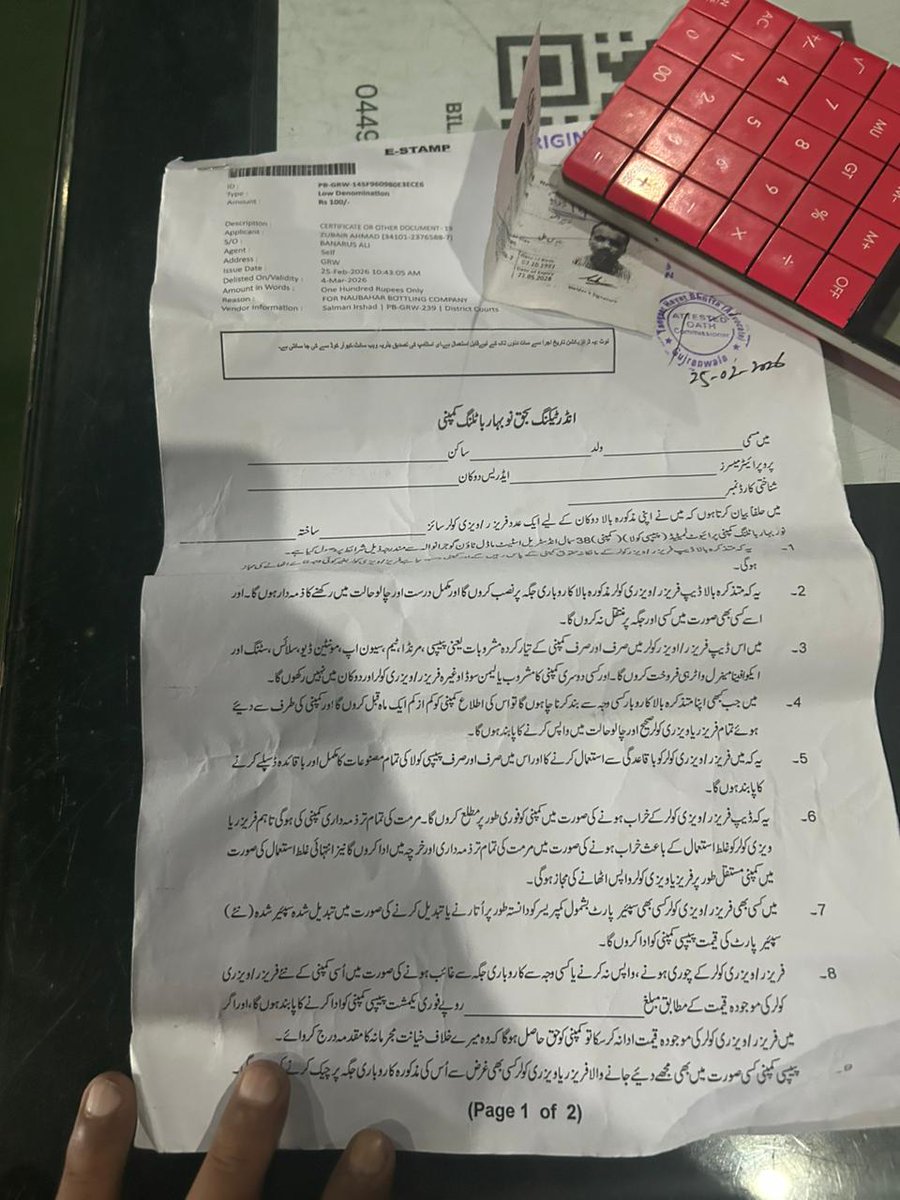 0449
BIL
RIGIN
E-STAMP
ID :
Type : Low Denomination
Amount : Rs 100/-
Description : CERTIFICATE OR OTHER DOCUMENT- 19
Applicant : ZUBAIR AHMAD [34101-2376588-7]
S/O : BANARUS ALI
Agent : Self
Address : GRW
Issue Date : 25-Feb-2026 10:43:05 AM
Delisted On/Validity : 4-Mar-2026
Amount in Words : One Hundred Rupees Only
Reason : FOR NAUBAHAR BOTTLING COMPANY
Vendor Information : Salman Irshad | PB-GRW-239 | District Courts
ATTESTED
OATH
Commissioner
Gujranwala
25-02-2026
انڈرٹیکنگ بحق نوبہار باٹلنگ کمپنی
میں مسمی ____ ولد ____ ساکن ____
پروپرائیٹر میسرز ____ ایڈریس دوکان ____
شناختی کارڈ نمبر ____
میں حلفا بیان کرتا ہوں کہ میں نے اپنی مذکورہ بالا دوکان کے لیے ایک عدد فریزر / ویزی کولر سائز ____ ساختہ
نوبہار باٹلنگ کمپنی پرائیویٹ لمیٹیڈ (پیپسی کولا) (کمپنی) 38 سمال انڈسٹریل اسٹیٹ ماڈل ٹاؤن گوجرانوالہ سے مندرجہ ذیل شرائط پر وصول کیا ہے۔
1- یہ کہ متذکرہ بالا ڈیپ فریزر / ویزی کولر کے
ہوگی۔
2- یہ کہ متذکرہ بالا ڈیپ فریزر / ویزی کولر مذکورہ بالا کاروباری جگہ پر نصب کروں گا اور مکمل درست اور چالو حالت میں رکھنے کا ذمہ دار ہوں گا۔ اور
اسے کسی بھی صورت میں کسی اور جگہ پر منتقل نہ کروں گا۔
3- میں اس ڈیپ فریزر / ویزر کولر میں صرف اور صرف کمپنی کے تیار کردہ مشروبات یعنی پیپسی، مرنڈا، ٹیم، سیون اپ، مونٹین ڈیو، سلائس، سٹنگ اور
ایکوافینا منرل واٹر ہی فروخت کروں گا۔ اور کسی دوسری کمپنی کا مشروب یا لیمن سوڈا وغیرہ فریزر / ویزی کولر اور دوکان میں نہیں رکھوں گا۔
4- میں جب کبھی اپنا متذکرہ بالا کاروبار کسی وجہ سے بند کرنا چاہوں گا تو اس کی اطلاع کمپنی کو کم از کم ایک ماہ قبل کروں گا اور کمپنی کی طرف سے دیئے
ہوئے تمام فریزر یا ویزی کولر صحیح اور چالو حالت میں واپس کرنے کا پابند ہوں گا۔
5- یہ کہ میں فریزر / ویزی کولر کو باقاعدگی سے استعمال کرنے کا اور اس میں صرف اور صرف پیپسی کولا کی تمام مصنوعات کا مکمل اور باقاعدہ ڈسپلے کرنے
کا پابند ہوں گا۔
6- یہ کہ ڈیپ فریزر / ویزی کولر کے خراب ہونے کی صورت میں کمپنی کو فوری طور پر مطلع کروں گا۔ مرمت کی تمام تر ذمہ داری کمپنی کی ہوگی تاہم فریزر یا
ویزی کولر کو غلط استعمال کے باعث خراب ہونے کی صورت میں مرمت کی تمام تر ذمہ داری اور خرچہ میں ادا کروں گا نیز انتہائی غلط استعمال کی صورت
میں کمپنی مستقل طور پر فریزر یا ویزی کولر واپس اٹھانے کی مجاز ہوگی۔
7- میں کسی بھی فریزر / ویزی کولر کسی بھی سپئیر پارٹ بشمول کمپریسر کو دانستہ طور پر اُتارنے یا تبدیل کرنے کی صورت میں تبدیل شدہ سپئیر شدہ (نئے)
سپئیر پارٹ کی قیمت پیپسی کمپنی کو ادا کروں گا۔
8- فریزر / ویزی کولر کے چوری ہونے، واپس نہ کرنے یا کسی وجہ سے کاروباری جگہ سے غائب ہونے کی صورت میں اُسی کمپنی کے نئے فریزر / ویزی
کولر کی موجودہ قیمت کے مطابق مبلغ ____ روپے فوری یکمشت پیپسی کمپنی کو ادا کرنے کا پابند ہوں گا، اور اگر
میں فریزر / ویزی کولر کی موجودہ قیمت ادا نہ کر سکا تو کمپنی کو حق حاصل ہوگا کہ وہ میرے خلاف خیانت مجرمانہ کا مقدمہ درج کروائے۔
9- پیپسی کمپنی کسی صورت میں بھی مجھے دیئے جانے والا فریزر یا ویزی کولر کسی بھی غرض سے اُس کی مذکورہ کاروباری جگہ پر چیک کرنے
(Page 1 of 2)